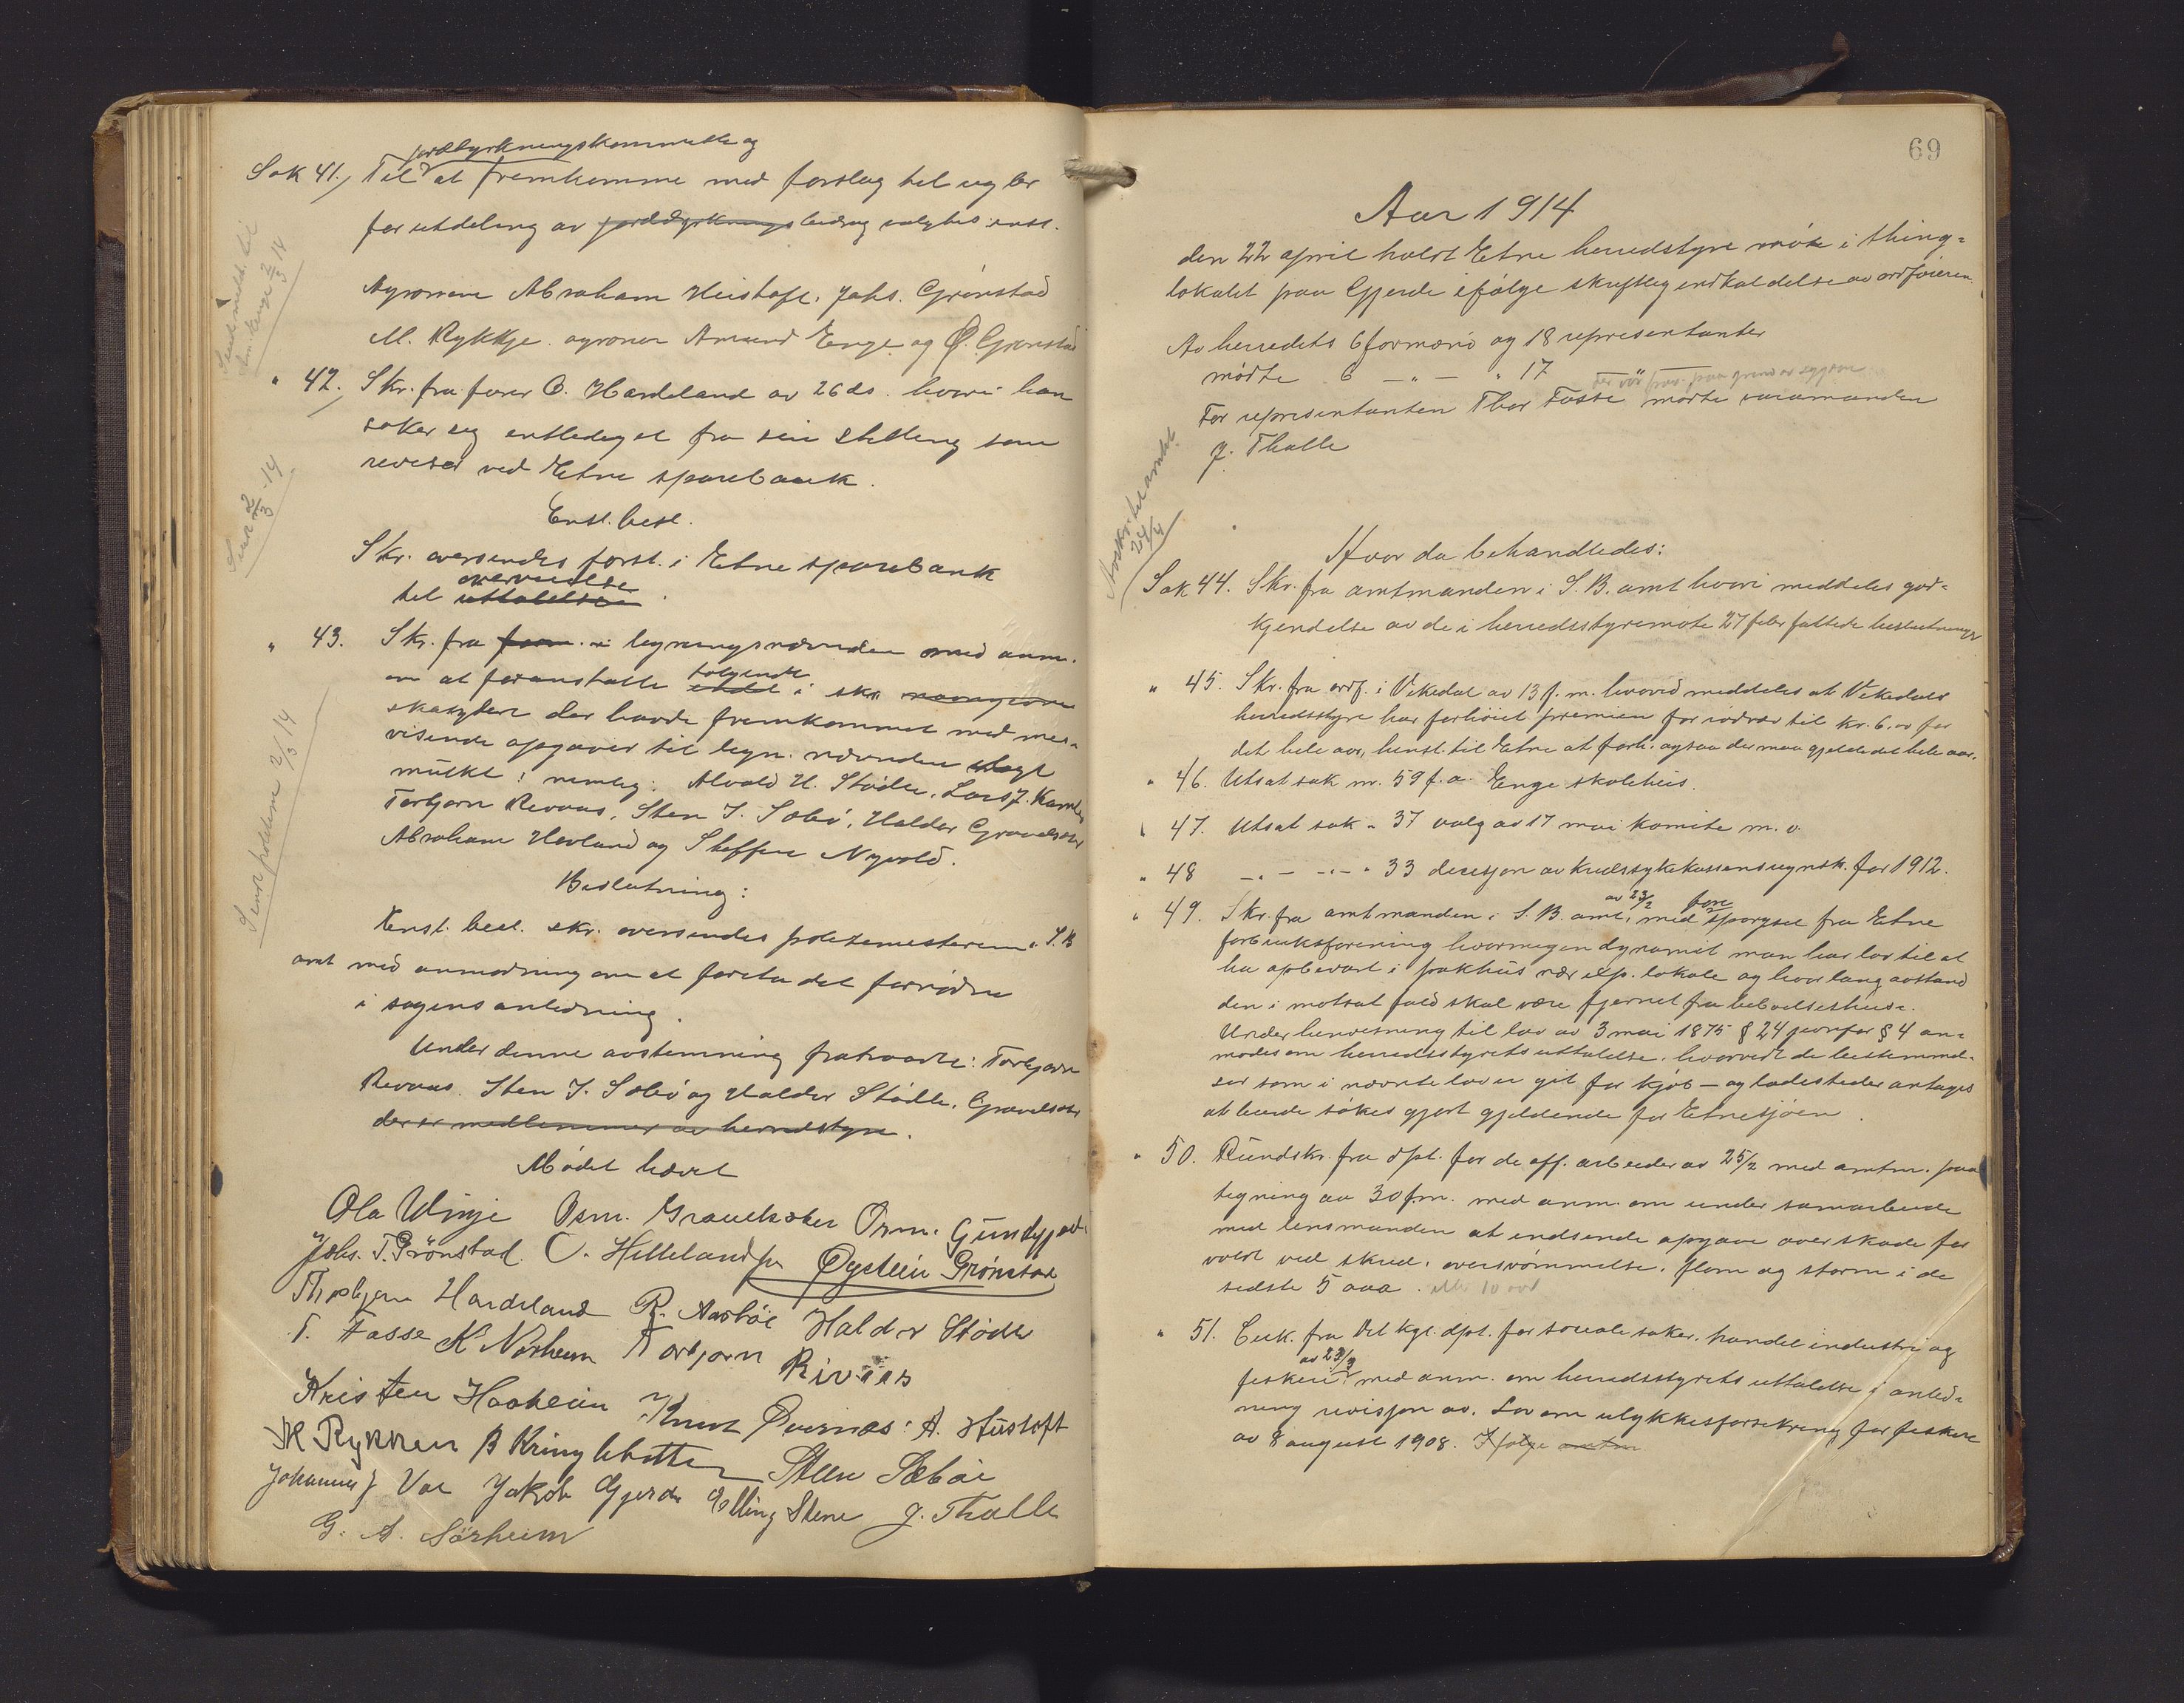 jorddyrkningskommitte og
Sak 41. Til at fremkomme med forslag til regler
for utdeling av jorddyrkningsbidrag valgtes enst.
Agronom Abraham Heistoft. Johs. Grönstad
M. Rykkje. agronom Amund Enge og Ø. Grönstad
Send meld. til
Am. Enge 2/3 14
" 42. Skr. fra forer O. Hardeland av 26 ds. hvori han
søker sig entlediget fra sin stilling som
revisor ved Etne sparebank.
Send 2/3-14
Enst. besl.
Skr. oversendes forst. i Etne sparebank
overveielse
til uttalelse.
" 43. Skr. fra form. i ligningsnævnden med anm.
om at foranstalte følgende i skr.
skatydere der havde fremkommet med mis-
visende opgaver til lign. nævnden ilagt
mulkt: nemlig: Alvald H. Stödle, Lars J.
Torbjørn Revaas, Sten J. Sæbö, Haldor Gravelsæter
Abraham Hevland og Steffen Nyvold.
Send politim 2/3 14
Beslutning:
Enst. besl. skr. oversendes politimesteren i S. B
amt med anmodning om at foreta det fornødne
i sagens anledning.
Under denne avstemning fratraadte: Torbjørn
Revaas. Sten J. Sæbö og Haldor Stödle, Gravelsæter
der er medlemmer av herredstyre.
Mødet hævet
Ola Vinje Osm. Gravelsæter Orm. Grindgjerd
Johs. T. Grönstad. O. Hilleland Øystein Grønstad
Thorbjørn Hardeland R. Aarböe Haldor Stödle
T. Fosse K Nørheim Torbjørn Rivaas
Kristen Haaheim Knut Øvernæs. A. Heistoft
M Rykken B Kringlebotten Steen Sæbøe
Johannes J Voe Jakob Gjerde Elling Stene J. Thalle
G. A. Sørheim
69
Aar 1914
den 22 april holdt Etne herredstyre möte i thing-
lokalet paa Gjerde ifølge skriftlig indkaldelse av ordføieren.
Av herredets 6 formænd og 18 representanter
mødte 6 — " — " 17
For representanten Thor Fosse mødte varamanden
J. Thalle
Avskr. til amtet
24/4
Hvor da behandledes:
Sak 44. Skr. fra amtmanden i S. B. amt hvori meddeles god-
kjendelse av de i herredsstyremøte 27 febr fattede beslutninger
" 45. Skr. fra ordf. i Vikedal av 13 f. m. hvorved meddeles at Vikedals
herredsstyre har forhöiet premien for rödræv til kr. 6.00 for
det hele aar, henst. til Etne at forh. ogsaa der maa gjelde det hele aar.
" 46. Utsat sak nr. 59 f. a. Enge skolehus.
" 47. Utsat sak " 37 valg av 17 mai komite m. v.
" 48 — " — " — " 33 decisjon av Kredssykekassens regnsk. for 1912.
av 23/2 fore
" 49. Skr. fra amtmanden i S. B. amt, med sporgsel fra Etne
forbruksforening hvormegen dynamit man har lov til at
ha opbevart i pakhus nær exp. lokale og hvor lang avstand
den i motsat fald skal være fjernet fra beboelseshuse.
Under henvisning til lov av 3 mai 1875 § 24 jevnfør § 4 an-
modes om herredsstyrets uttalelse. hvorvidt de bestemmel-
ser som i nævnte lov er git for kjöb- og ladesteder antages
at burde sökes gjort gjeldende for Etnesjöen.
" 50. Rundskr. fra dpt. for de off. arbeider av 25/2 med amtm. paa
tegning av 30 f.m. med anm. om under samarbeide
med lensmanden at indsende opgave over skade for
voldt ved skred, oversvömmelse, flom og storm i de
sidste 5 aar. eller 10 aar
" 51. Cirk. fra Det kgl. dpt. for sociale saker, handel industri og
av 23/3
fiskeri med anm. om herredsstyrets uttalelse i anled-
ning revisjon av. Lov om ulykkesforsikring for fiskere
av 8 august 1908. Ifølge amtm